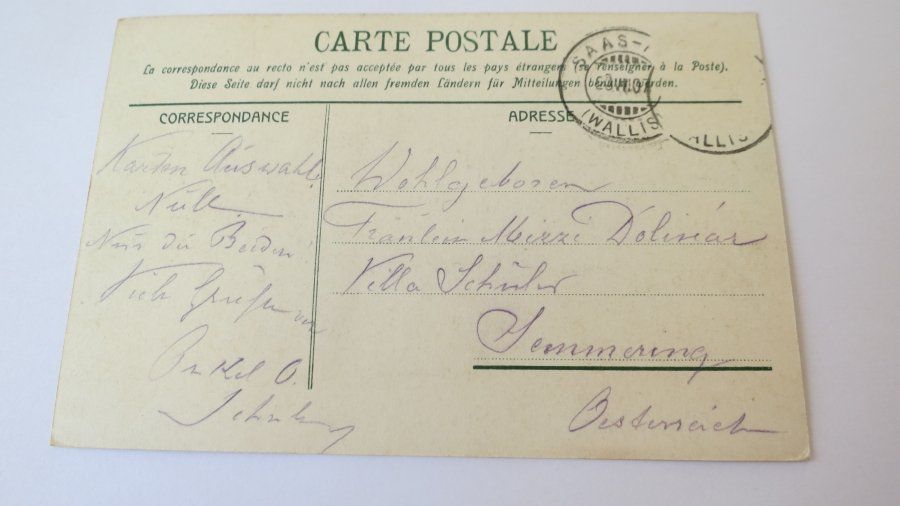 CARTE POSTALE
La correspondance au recto n'est pas acceptée par tous les pays étrangers (se renseigner à la Poste).
Diese Seite darf nicht nach allen fremden Ländern für Mitteilungen benützt werden.
SAAS-
VII.07
(WALLIS)
ALLIS)
CORRESPONDANCE
Karten Auswahl
Null
Nur die Beiden!
Viele Grüße von
Onkel O.
ADRESSE
Wohlgeboren
Fräulein Mizzi Dolinár
Villa Schüler
Semmering
Oesterreich